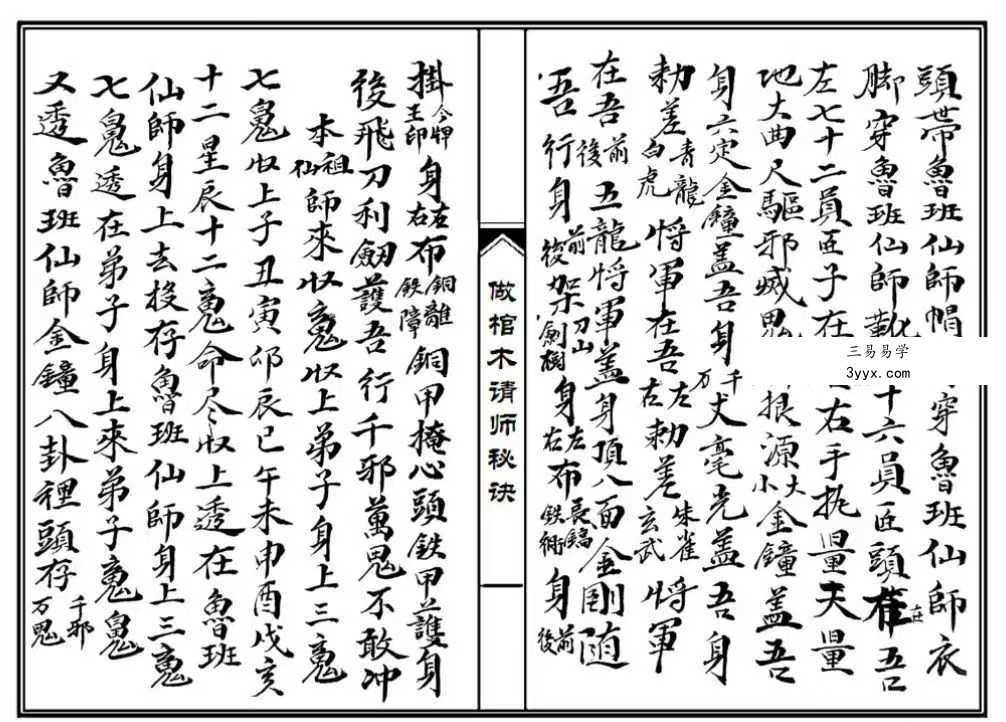 頭帶魯班仙師帽穿魯班仙師衣
脚穿魯班仙師靴十六員匠頭在吾
左七十二員匠子在右手执量天量
地大曲尺驅邪滅鬼根源大小金鐘蓋吾
身六定金鐘盖吾身千万丈毫光盖吾身
勅差青龍白虎将軍在吾左右勅差朱雀玄武将軍
在吾前後五龍将軍盖身頂八面金剛随
吾行身前後架刀山劍樹身左右布長鎗鉄身前後
做棺木请师秘诀
掛令牌王印身左右布銅籬鉄障銅甲掩心頭鉄甲護身
後飛刀利劔護吾行千邪萬鬼不敢冲
本祖仙師來收魂收上弟子身上三魂
七魄收上子丑寅卯辰巳午未申酉戌亥
十二星辰十二魂命尽收上透在魯班
仙師身上去投存魯班仙師身上三魂
七魄透在弟子身上來弟子魂魄
又透魯班仙師金鐘八卦裡頭存千邪万鬼
三易易学
3yyx.com